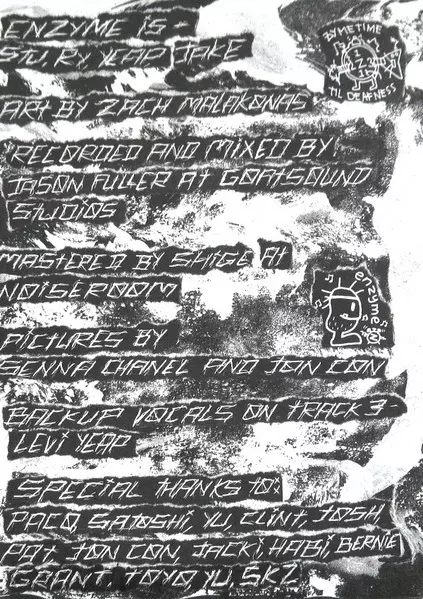 ENZYME IS -
STU, RY, YEAP, JAKE
ART BY ZACH MALAKONAS
RECORDED AND MIXED BY:
JASON FULLER AT GOATSOUND
STUDIOS
MASTERED BY SHIGE AT
NOISEROOM
PICTURES BY
SENNA CHANEL AND JON CON
BACKUP VOCALS ON TRACK 3 -
LEVI YEAP
SPECIAL THANKS TO:
PACO, SATOSHI, YU, CLINT, JOSH
PAT, JON CON, JACKI, HABI, BERNIE
GRANT, TOYO, YU, SKZ
enzyme